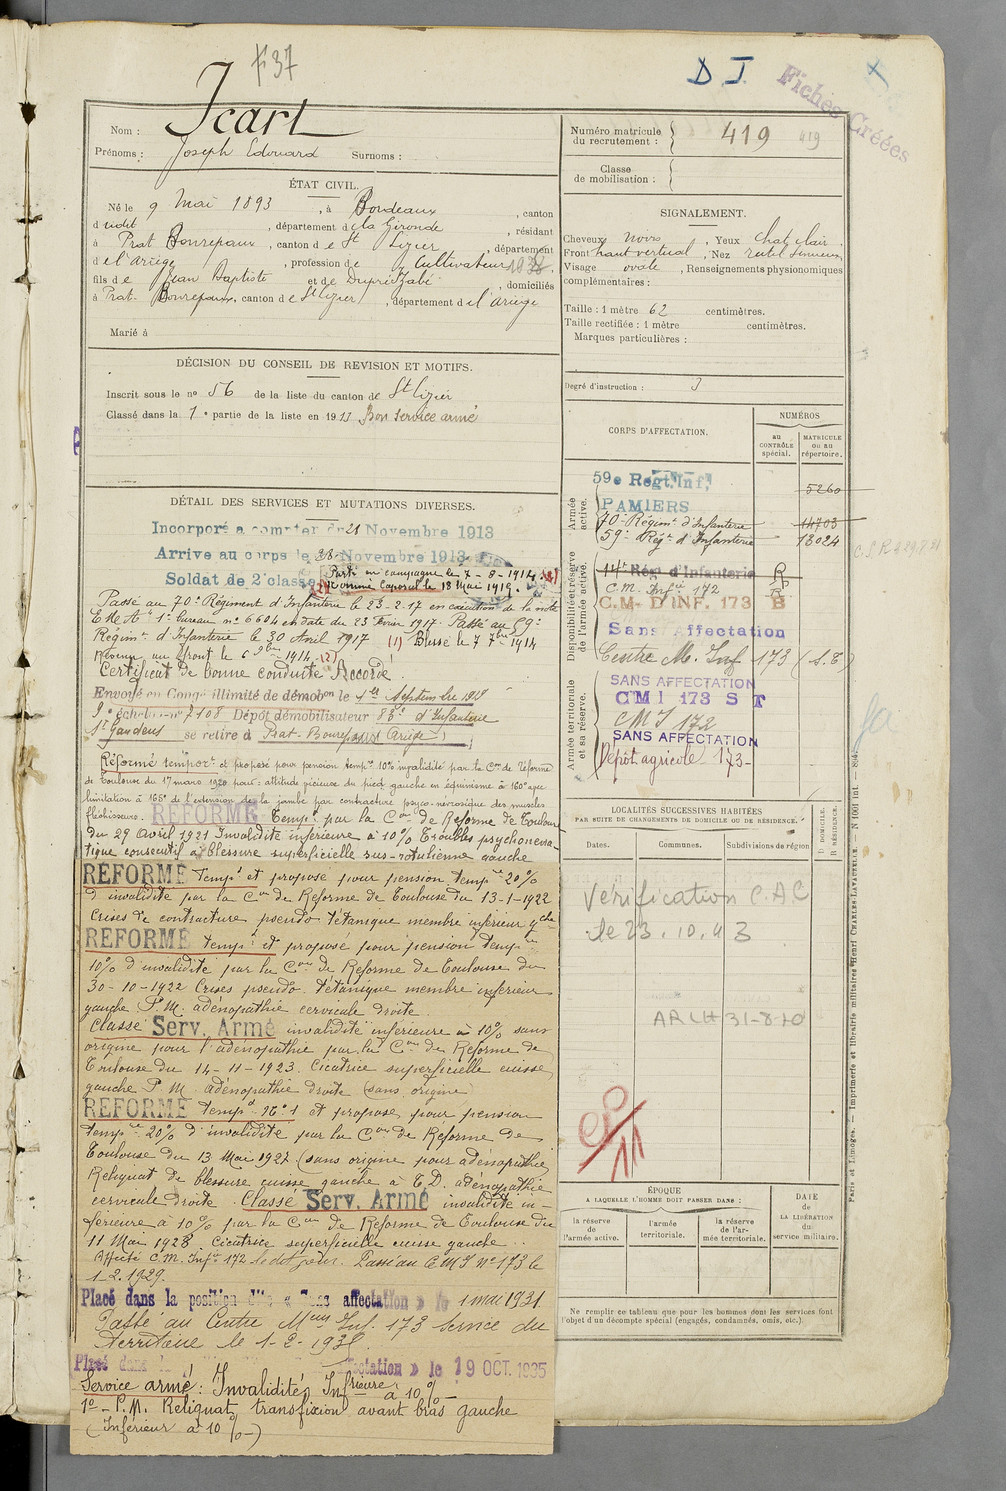 F 37
D J.
Fichés Créées
Nom : Icart
Prénoms : Joseph Edouard Surnoms :
ÉTAT CIVIL.
Né le 9 Mai 1893, à Bordeaux, canton
dudit, département de la Gironde, résidant
à Prat Bonrepaux, canton de St Lizier, département
de l'Ariège, profession de Cultivateur
fils de Jean Baptiste et de Dupriet Zabé domiciliés
à Prat-Bonrepaux, canton de St Lizier, département de l'Ariège
Marié à
DÉCISION DU CONSEIL DE REVISION ET MOTIFS.
Inscrit sous le no 56 de la liste du canton de St Lizier
Classé dans la 1e partie de la liste en 1913 Bon Service armé
DÉTAIL DES SERVICES ET MUTATIONS DIVERSES.
Incorporé a compter du 28 Novembre 1913
Arrive au corps le 28 Novembre 1913
Soldat de 2e classe
Parti en campagne le 7-8-1914. (1)
(2) Nommé Caporal le 18 Mai 1919.
Passé au 70e Régiment d'Infanterie le 23-2-17 en exécution de la note
E.M.A. 1er bureau no 6604 en date du 23 Février 1917. Passé au 59e
Régimt d'Infanterie le 30 Avril 1917 (1) Blessé le 7 7bre 1914
Revenu au front le 6 9bre 1914 (2)
Certificat de bonne conduite Accordé.
Envoyé en Congé illimité de démobon le 1er Septembre 1919
9e échelon no 7108 Dépôt démobilisateur 83e d'Infanterie
St Gaudens se retire à Prat-Bonrepaux Ariège
Réformé tempore et proposé pour pension tempre 10% invalidité par la Con de réforme
de Toulouse du 17 mars 1920 pour : attitude vicieuse du pied gauche en équinisme à 160° avec
limitation à 165° de l'extension de la jambe par contracture psyco-névrosique des muscles
fléchisseurs. REFORMÉ Tempre par la Con de Réforme de Toulouse
du 29 Avril 1921 Invalidité inférieure à 10% Troubles psychoneva-
tique consécutif à blessure superficielle sus-rotulienne gauche
REFORMÉ Tempre et proposé pour pension tempre 20%
d'invalidité par la Con de Réforme de Toulouse du 13-1-1922
Crises de contracture pseudo tétanique membre inférieur gche
REFORMÉ tempre et proposé pour pension tempre
10% d'invalidité par la Con de Réforme de Toulouse du
30-10-1922 Crises pseudo-tétanique membre inférieur
gauche P.M. adénopathie cervicale droite.
Classé Serv. Armé invalidité inférieure à 10% sans
origine pour l'adénopathie par la Con de Réforme de
Toulouse du 14-11-1923. Cicatrice superficielle cuisse
gauche P.M. adénopathie droite (sans origine)
REFORMÉ tempre No 1 et proposé pour pension
tempre 20% d'invalidité par la Con de Réforme de
Toulouse du 13 Mai 1927 (sans origine pour adénopathie)
Reliquat de blessure cuisse gauche à E.D. adénopathie
cervicale droite. Classé Serv. Armé invalidité in-
férieure à 10% par la Con de Réforme de Toulouse du
11 Mai 1928 Cicatrice superficielle cuisse gauche.
Affecté C.M. Infie 172 Passé au C.M.I no 173 le
1-2-1929.
Placé dans la position dite « Sans affectation » le 1 mai 1931.
Passé au Centre Mon Inf. 173 Service du
Territoire le 1-2-193
Placé dans la affectation » le 19 OCT. 1935
Service armé : Invalidité Inférieure à 10%
1o - P.M. Reliquat transfixion avant bras gauche
(Inférieur à 10%-)
Numéro matricule du recrutement : 419 419
Classe de mobilisation :
SIGNALEMENT.
Cheveux noirs, Yeux chat. clair.
Front haut vertical, Nez rectil. sinueux
Visage ovale, Renseignements physionomiques
complémentaires :
Taille : 1 mètre 62 centimètres.
Taille rectifiée : 1 mètre centimètres.
Marques particulières :
Degré d'instruction : 3
CORPS D'AFFECTATION.
NUMÉROS
AU CONTRÔLE spécial.
MATRICULE ou au répertoire.
Armée active.
59e Régt. Inf. PAMIERS 5260
70e Régimt d'Infanterie 14703
59e Régt d'Infanterie 13024
Disponibilité et réserve de l'armée active.
14e Régt d'Infanterie
C.M. Infie 172
C.M. D'INF. 173 B
Sans Affectation
Centre M. Inf 173 (S.T)
Armée territoriale et sa réserve.
SANS AFFECTATION
CMI 173 S T
CMI 172
SANS AFFECTATION
Dépôt agricole 173-
LOCALITÉS SUCCESSIVES HABITÉES
PAR SUITE DE CHANGEMENTS DE DOMICILE OU DE RÉSIDENCE.
Dates.
Communes.
Subdivisions de région
D DOMICILE. R RÉSIDENCE.
Vérification C.A.C
le 23.10.43
31-8-20
11
ÉPOQUE
A LAQUELLE L'HOMME DOIT PASSER DANS :
la réserve de l'armée active.
l'armée territoriale.
la réserve de l'armée territoriale.
DATE de LA LIBÉRATION du service militaire.
Ne remplir ce tableau que pour les hommes dont les services font
l'objet d'un décompte spécial (engagés, condamnés, omis, etc.)
Paris et Limoges. — Imprimerie et librairie militaires Henri CHARLES-LAVAUZELLE.